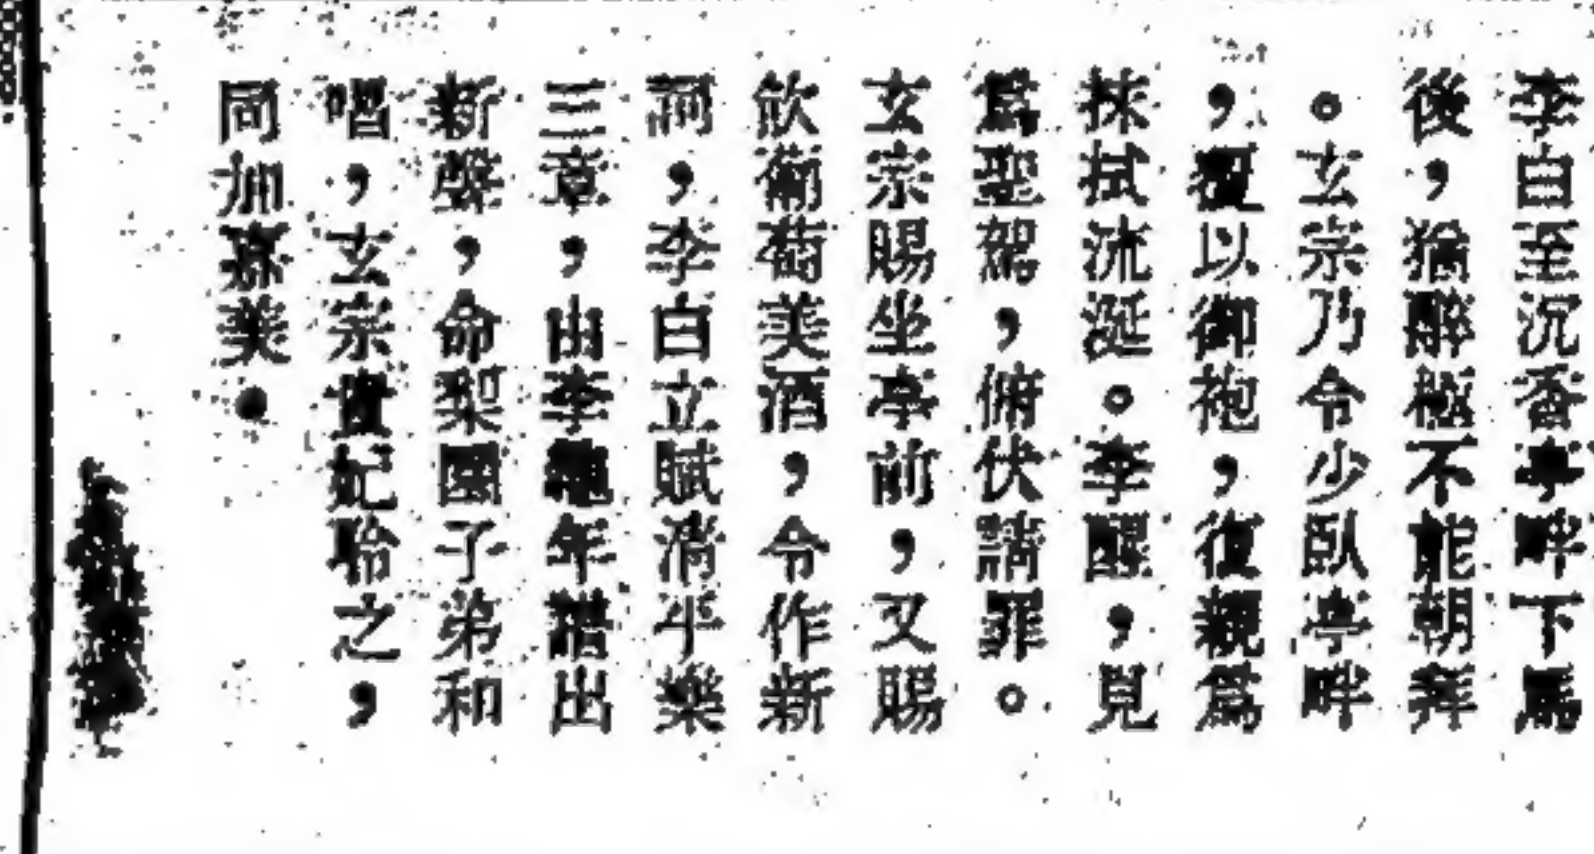 李白至沉香亭畔下馬
後，猶醉極不能朝拜
。玄宗乃令少臥亭畔
，覆以御袍，復親爲
抹拭流涎。李醒，見
爲聖駕，俯伏請罪。
玄宗賜坐亭前，又賜
飲葡萄美酒，令作新
詞，李白立賦淸平樂
三章，由李龜年譜出
新聲，命梨園子弟和
唱，玄宗貴妃聆之，
同加嘉美。